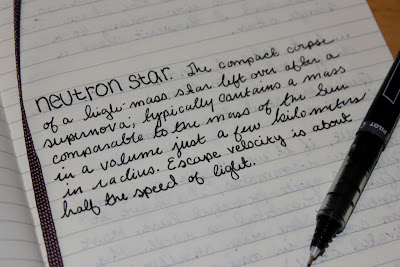 neutron star. The compact corpse
of a high-mass star left over after a
supernova; typically contains a mass
comparable to the mass of the Sun
in a volume just a few kilometers
in radius. Escape velocity is about
half the speed of light.
PILOT